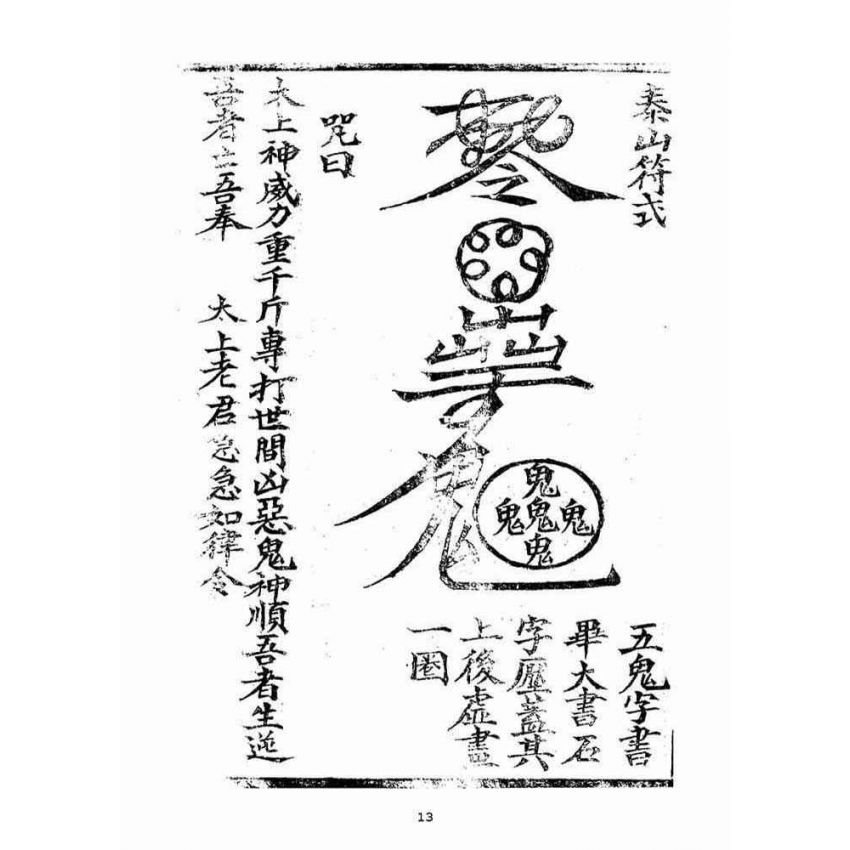 泰山符式
鬼
鬼鬼鬼
鬼
五鬼字書
畢大書石
字壓蓋其
上後虛畫
一圈
咒曰
太上神威力重千斤專打世間凶惡鬼神順吾者生逆
吾者亡吾奉 太上老君急急如律令
13